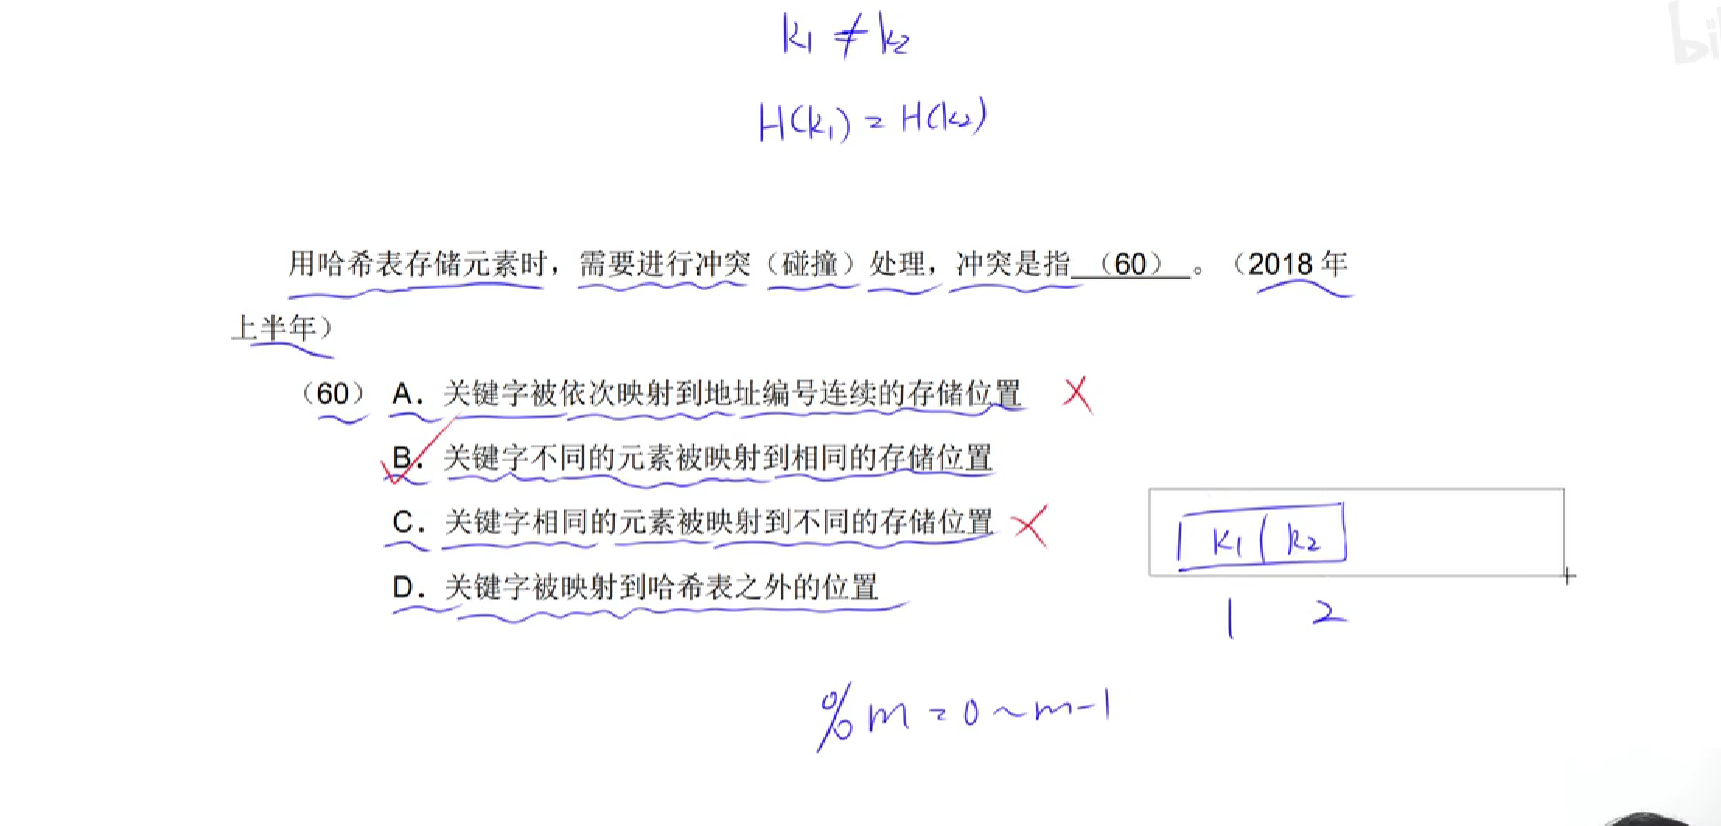 k₁ ≠ k₂
H(k₁) = H(k₂)
用哈希表存储元素时，需要进行冲突（碰撞）处理，冲突是指（60）。（2018 年
上半年）
（60） A. 关键字被依次映射到地址编号连续的存储位置
B. 关键字不同的元素被映射到相同的存储位置
C. 关键字相同的元素被映射到不同的存储位置
k₁ k₂
D. 关键字被映射到哈希表之外的位置
1 2
% m = 0 ~ m-1